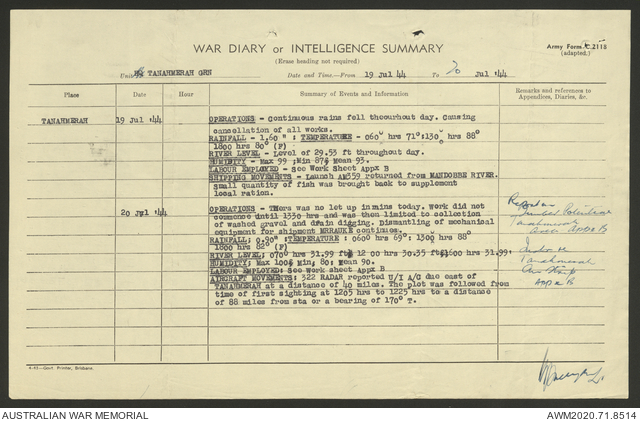 WAR DIARY or INTELLIGENCE SUMMARY
Army Form C.2118
(Erase heading not required)
(adapted.)
Unit HQ TANAHMERAH GRN
Date and Time—From 19 Jul 44 To 20 Jul 44
Place Date Hour Summary of Events and Information Remarks and references to
Appendices, Diaries, &c.
TANAHMERAH 19 Jul 44 OPERATIONS - Continuous rains fell theouhout day. Causing
cancellation of all works.
RAINFALL - 1.60 " : TEMPERATURE - 0600 hrs 71° : 1300 hrs 88°
1800 hrs 80° (F)
RIVER LEVEL - Level of 29.53 ft throughout day.
HUMIDITY - Max 99 ; Min 87; Mean 93.
LABOUR EMPLOYED - See Work Sheet Appx B
SHIPPING MOVEMENTS - Launch AM359 returned from MANDOBBE RIVER.
Small quantity of fish was brought back to supplement
local ration.
20 Jul 44 OPERATIONS - There was no let up in mins today. Work did not
commence until 1330 hrs and was then limited to collection
of washed gravel and drain digging. Dismantling of mechanical
equipment for shipment MERAUKE continues.
RAINFALL: 0.90" : TEMPERATURE : 0600 hrs 69°: 1300 hrs 88°
1800 hrs 82° (F)
RIVER LEVEL: 0700 hrs 31.99 ft; 1200 hrs 30.35 ft; 1600 hrs 31.99:
HUMIDITY: Max 100; Min; 80: Mean 90.
LABOUR EMPLOYED: See Work sheet Appx B
AIRCRAFT MOVEMENTS: 322 RADAR reported U/I A/C due east of
TANAHMERAH at a distance of 40 miles. The plot was followed from
time of first sighting at 1205 hrs to 1225 hrs to a distance
of 88 miles from sta or a bearing of 170° T.
Report on
Timber Potential
Tanahmerah
Area Appx B
Tanahmerah
Appx B
4-43—Govt. Printer, Brisbane.
AUSTRALIAN WAR MEMORIAL
AWM2020.71.8514